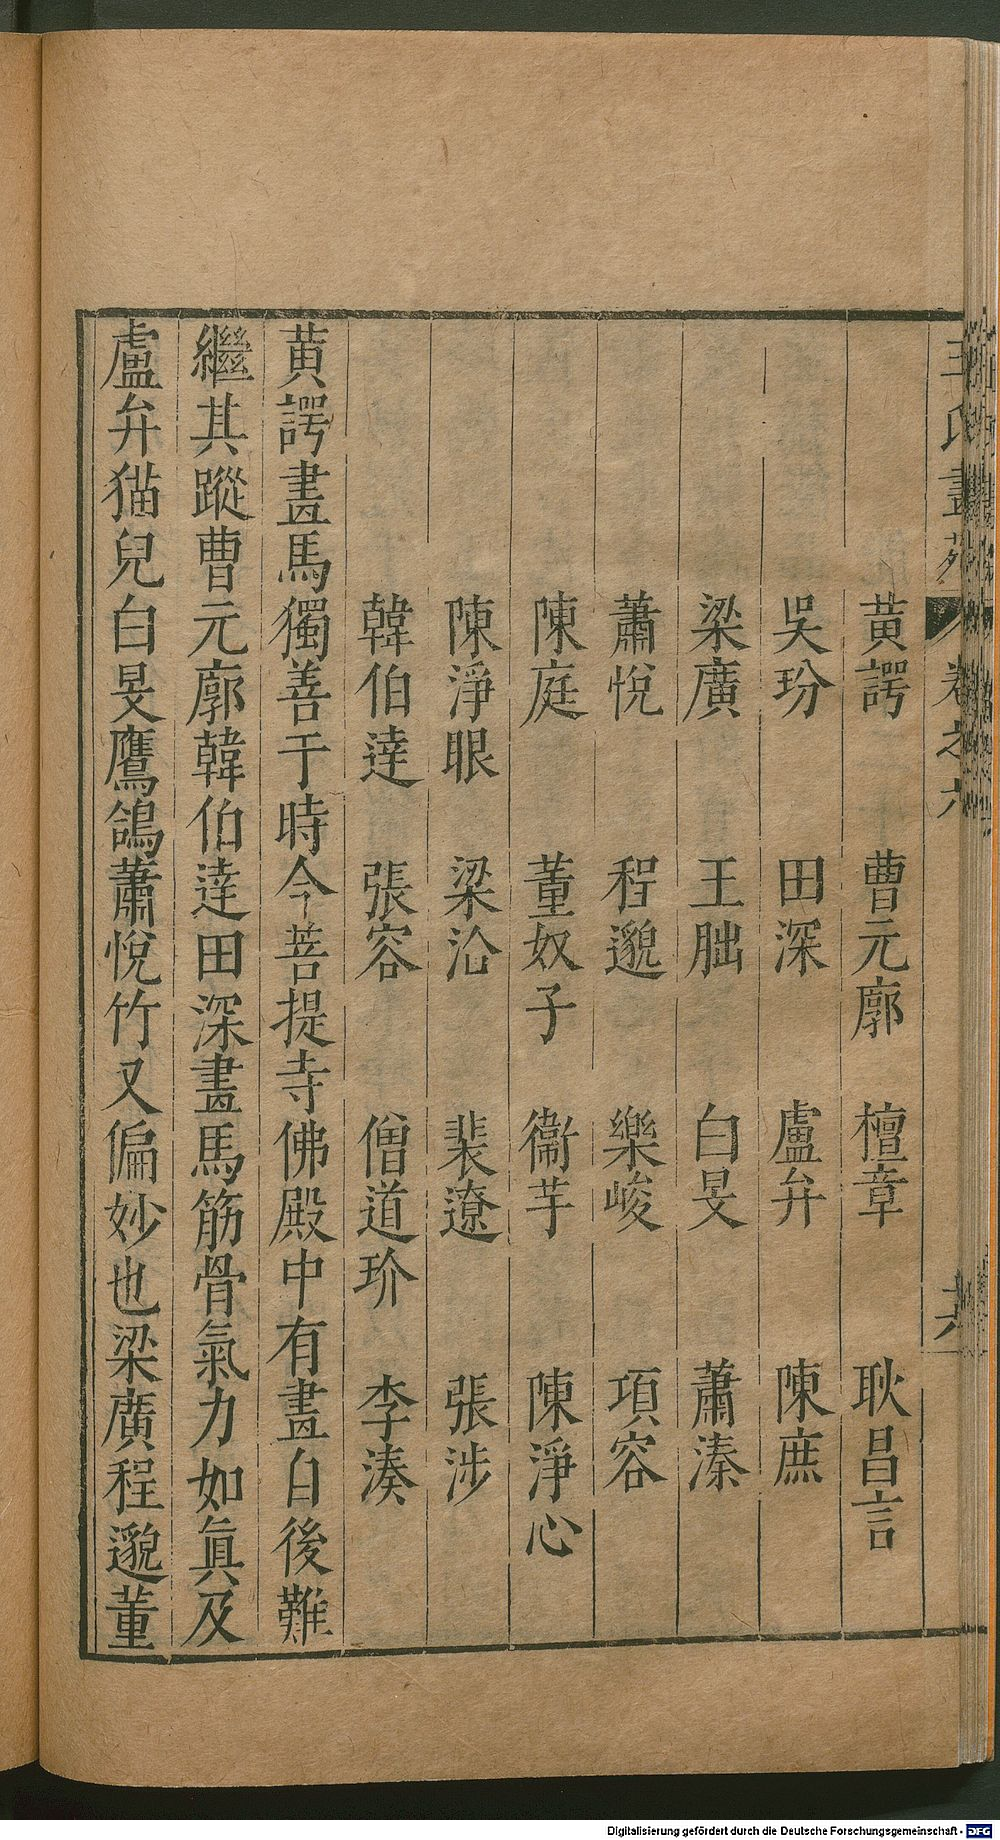 王氏畫苑 卷之六 六
黃諤 曹元廓 檀章 耿昌言
吳玢 田深 盧弁 陳庶
梁廣 王朏 白旻 蕭溱
蕭悅 程邈 樂峻 項容
陳庭 董奴子 衞芊 陳淨心
陳淨眼 梁洽 裴遼 張涉
韓伯達 張容 僧道玠 李湊
黃諤畫馬獨善于時今菩提寺佛殿中有畫自後難
繼其蹤曹元廓韓伯達田深畫馬筋骨氣力如眞及
盧弁猫兒白旻鷹鴿蕭悅竹又偏妙也梁廣程邈董
Digitalisierung gefördert durch die Deutsche Forschungsgemeinschaft - DFG